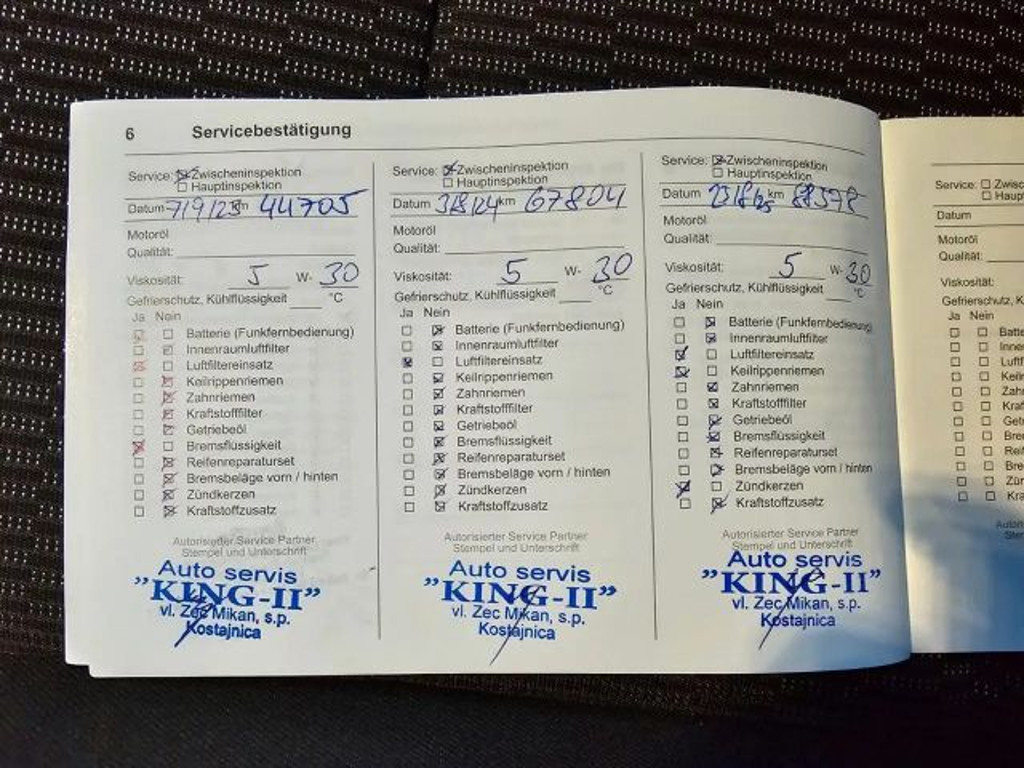 6 Servicebestätigung
Service: ☒ Zwischeninspektion
☐ Hauptinspektion
Datum 7/9/23 km 44705
Motoröl
Qualität:
Viskosität: 5 W- 30
Gefrierschutz, Kühlflüssigkeit °C
Ja Nein
Batterie (Funkfernbedienung)
Innenraumluftfilter
Luftfiltereinsatz
Keilrippenriemen
Zahnriemen
Kraftstofffilter
Getriebeöl
Bremsflüssigkeit
Reifenreparaturset
Bremsbeläge vorn / hinten
Zündkerzen
Kraftstoffzusatz
Autorisierter Service Partner
Stempel und Unterschrift
Auto servis
"KING-II"
vl. Zec Mikan, s.p.
Kostajnica
Service: ☒ Zwischeninspektion
☐ Hauptinspektion
Datum 31/8/24 km 67804
Motoröl
Qualität:
Viskosität: 5 W- 30
Gefrierschutz, Kühlflüssigkeit °C
Ja Nein
Batterie (Funkfernbedienung)
Innenraumluftfilter
Luftfiltereinsatz
Keilrippenriemen
Zahnriemen
Kraftstofffilter
Getriebeöl
Bremsflüssigkeit
Reifenreparaturset
Bremsbeläge vorn / hinten
Zündkerzen
Kraftstoffzusatz
Autorisierter Service Partner
Stempel und Unterschrift
Auto servis
"KING-II"
vl. Zec Mikan, s.p.
Kostajnica
Service: ☒ Zwischeninspektion
☐ Hauptinspektion
Datum 23/8/25 km 88578
Motoröl
Qualität:
Viskosität: 5 W- 30
Gefrierschutz, Kühlflüssigkeit °C
Ja Nein
Batterie (Funkfernbedienung)
Innenraumluftfilter
Luftfiltereinsatz
Keilrippenriemen
Zahnriemen
Kraftstofffilter
Getriebeöl
Bremsflüssigkeit
Reifenreparaturset
Bremsbeläge vorn / hinten
Zündkerzen
Kraftstoffzusatz
Autorisierter Service Partner
Stempel und Unterschrift
Auto servis
"KING-II"
vl. Zec Mikan, s.p.
Kostajnica
Service: ☐
☐
Datum
Motoröl
Qualität:
Viskosität:
Ja Nein